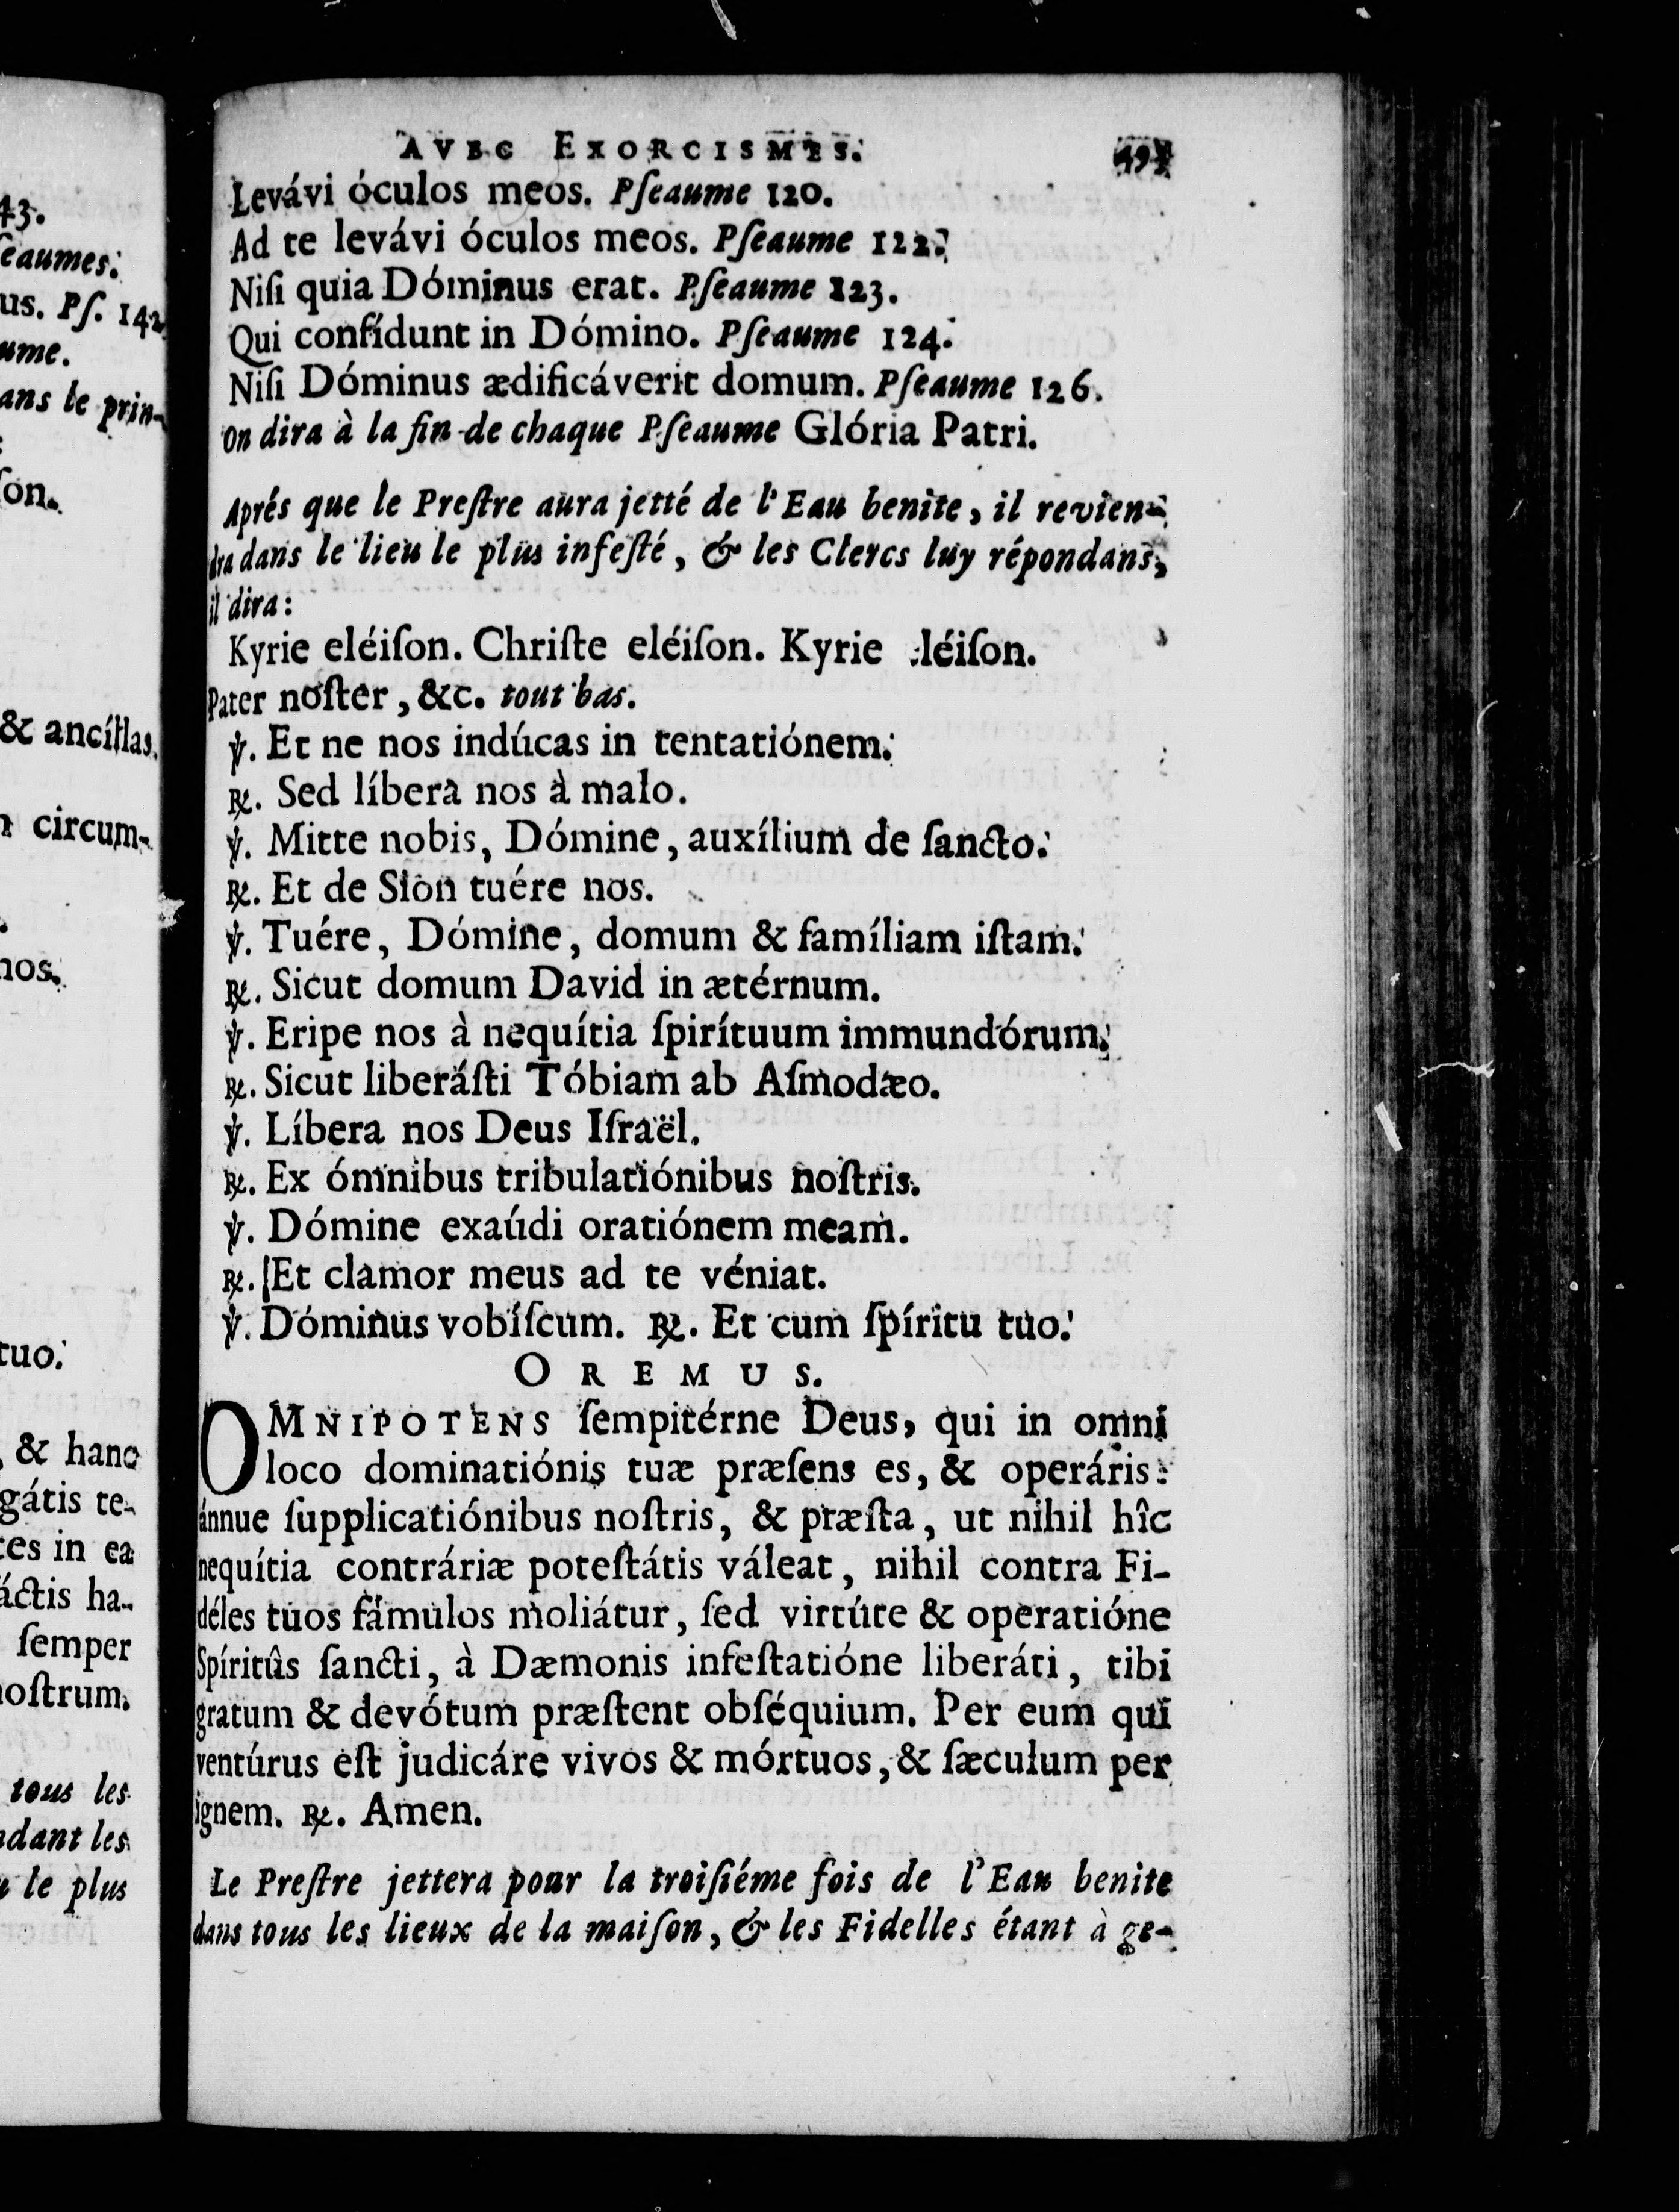 43.
ſeaumes.
us. Pſ. 142
ume.
ans le prin-
ſon.
& ancíllas.
circum-
nos.
tuo.
, & hanc
gátis te-
tes in ea
áctis ha-
ſemper
noſtrum.
tous les
ndant les
le plus
AVEC EXORCISMES.
Levávi óculos meos. Pſeaume 120.
Ad te levávi óculos meos. Pſeaume 122.
Niſi quia Dóminus erat. Pſeaume 123.
Qui confídunt in Dómino. Pſeaume 124.
Niſi Dóminus ædificáverit domum. Pſeaume 126.
On dira à la fin de chaque Pſeaume Glória Patri.
Aprés que le Preſtre aura jetté de l'Eau benite, il revien-
dra dans le lieu le plus infeſté, & les Clercs luy répondans,
il dira:
Kyrie eléiſon. Chriſte eléiſon. Kyrie eléiſon.
Pater noſter, &c. tout bas.
℣. Et ne nos indúcas in tentatiónem.
℟. Sed líbera nos à malo.
℣. Mitte nobis, Dómine, auxílium de ſancto.
℟. Et de Sion tuére nos.
℣. Tuére, Dómine, domum & famíliam iſtam.
℟. Sicut domum David in ætérnum.
℣. Eripe nos à nequítia ſpirítuum immundórum.
℟. Sicut liberáſti Tóbiam ab Aſmodæo.
℣. Líbera nos Deus Iſraël.
℟. Ex ómnibus tribulatiónibus noſtris.
℣. Dómine exaúdi oratiónem meam.
℟. Et clamor meus ad te véniat.
℣. Dóminus vobíſcum. ℟. Et cum ſpíritu tuo.
OREMUS.
OMNIPOTENS ſempitérne Deus, qui in omni
loco dominatiónis tuæ præſens es, & operáris:
ánnue ſupplicatiónibus noſtris, & præſta, ut nihil hîc
nequítia contráriæ poteſtátis váleat, nihil contra Fi-
déles tuos fámulos moliátur, ſed virtúte & operatióne
Spíritûs ſancti, à Dæmonis infeſtatióne liberáti, tibi
gratum & devótum præſtent obſéquium. Per eum qui
ventúrus eſt judicáre vivos & mórtuos, & ſæculum per
ignem. ℟. Amen.
Le Preſtre jettera pour la troiſiéme fois de l'Eau benite
dans tous les lieux de la maiſon, & les Fidelles étant à ge-